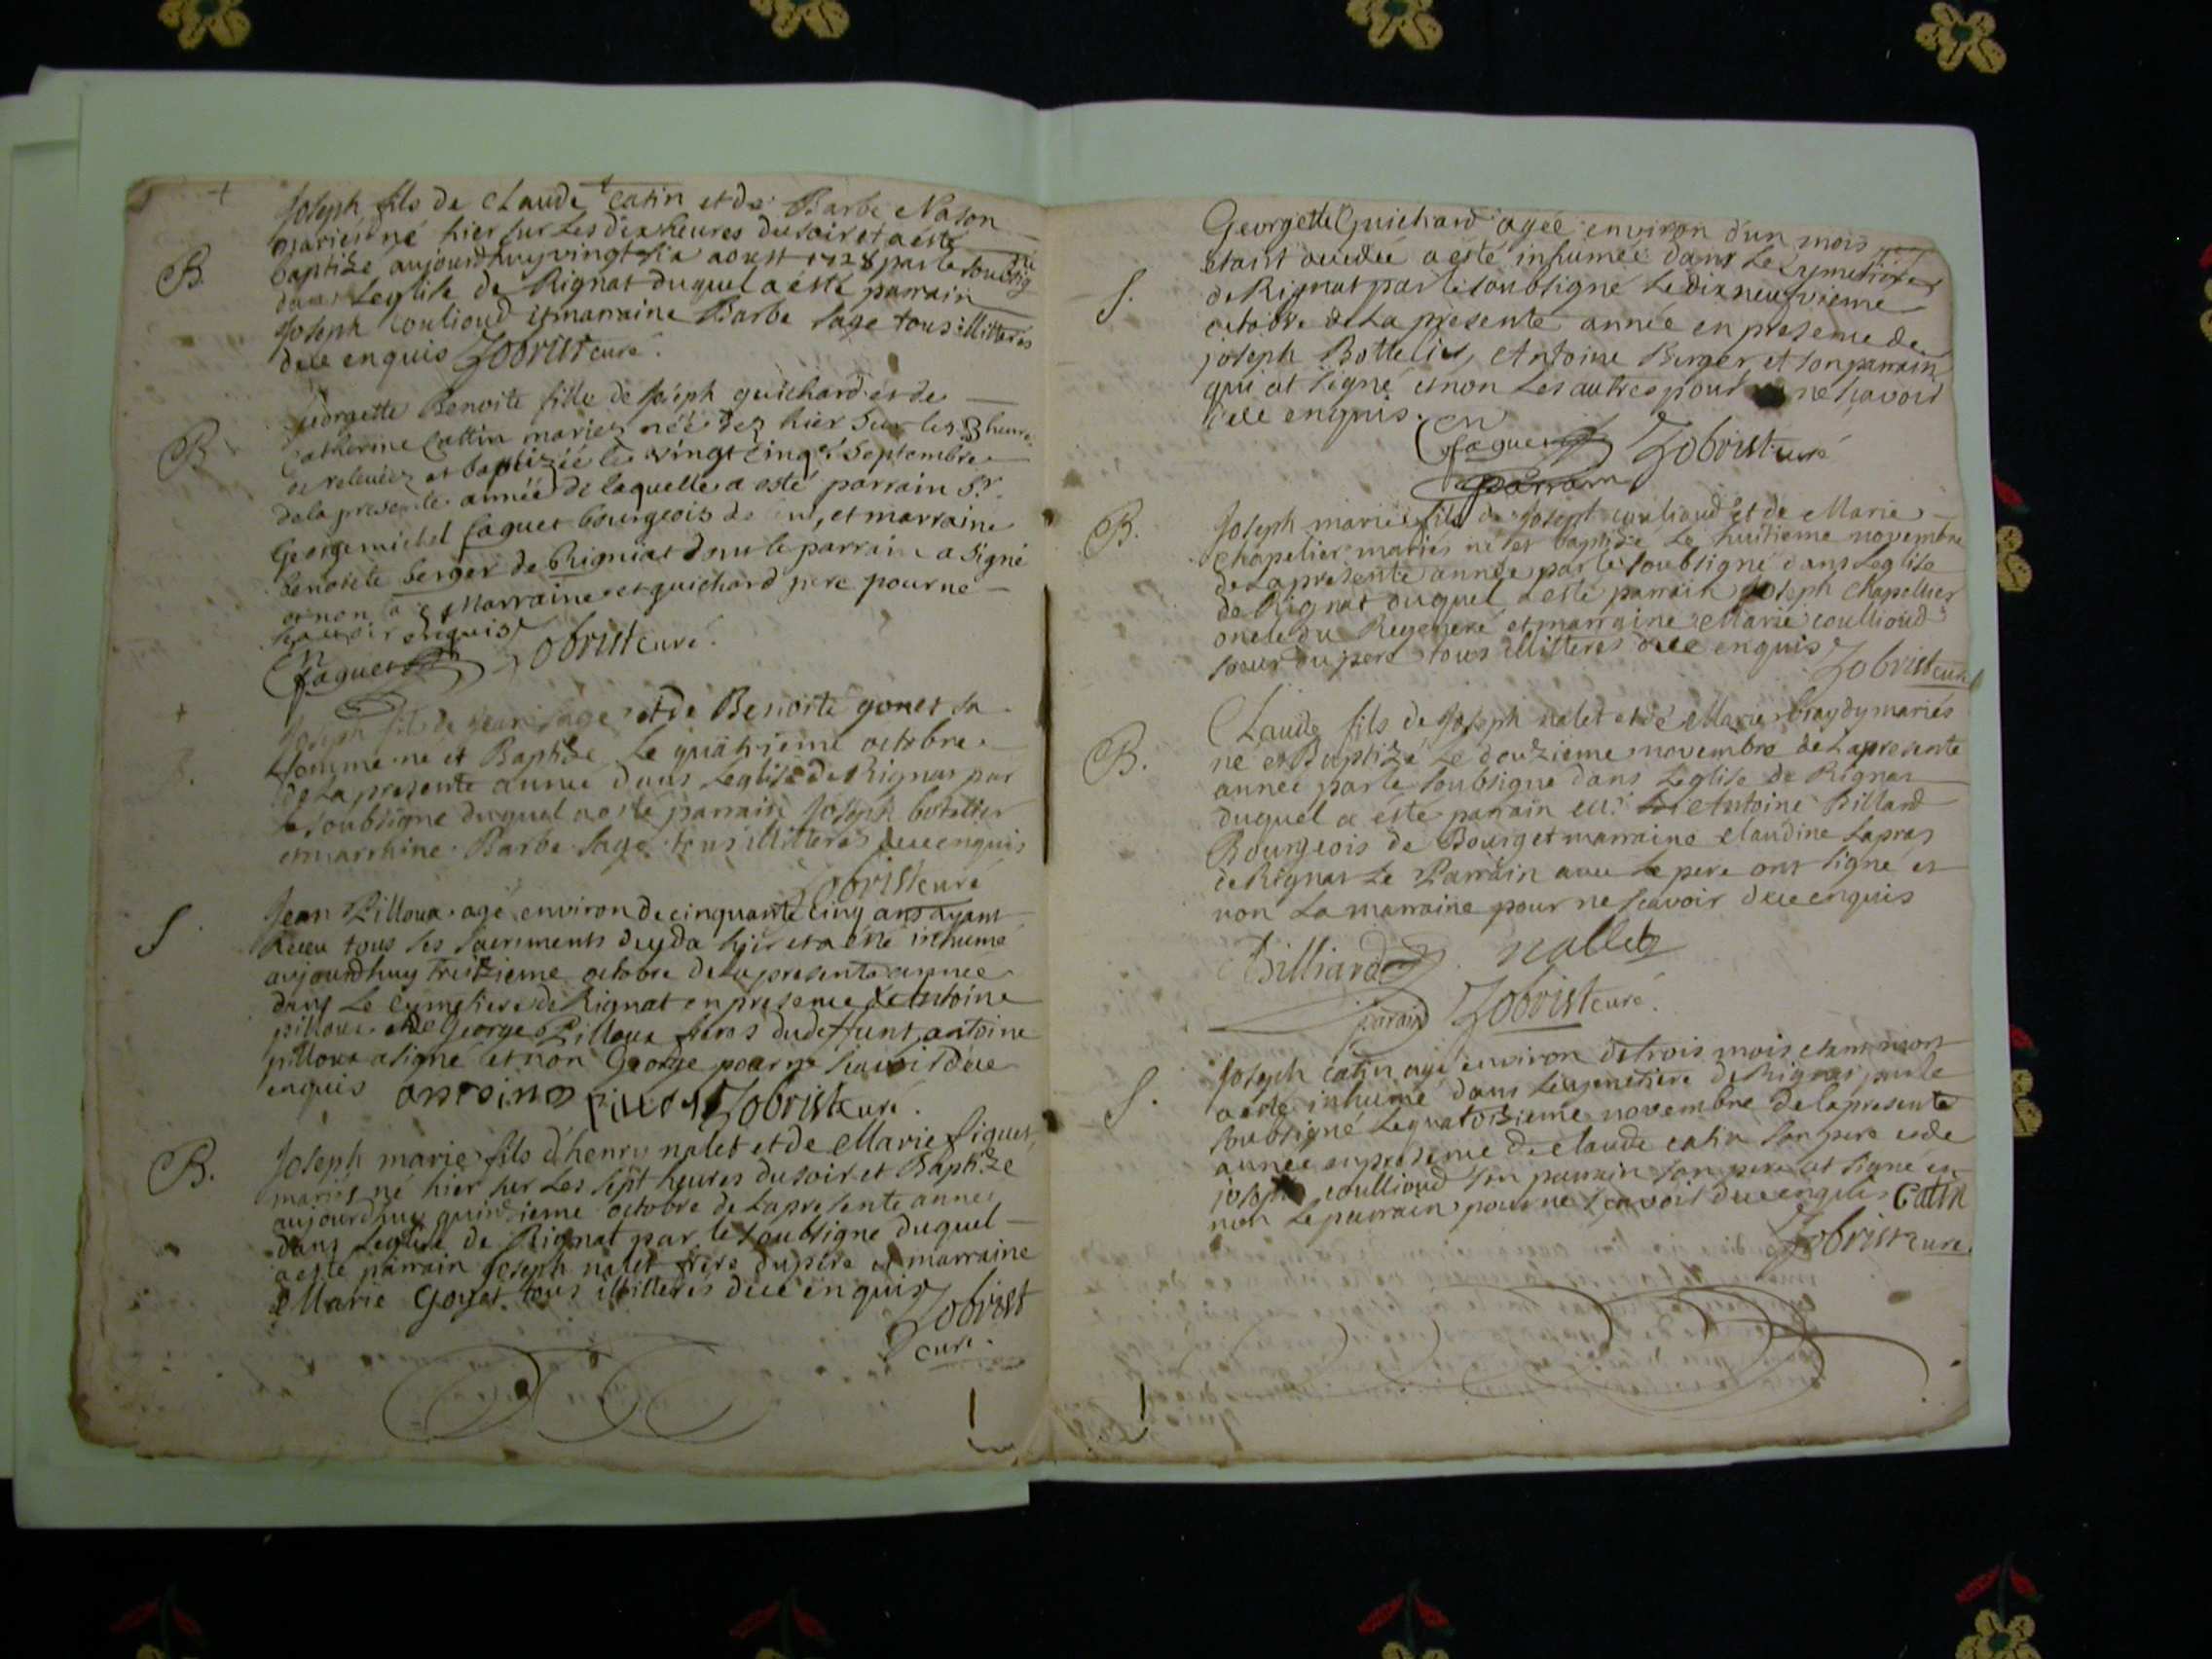 Joseph fils de Claude Catin et de Barbe Nason
mariés né hier sur Les dix heures du soir et a esté
B.
baptizé aujourdhuy vingt six aoust 1728 par le soubsig
né
dans Leglise de Rignat duquel a esté parrain
Joseph Coulioud et marraine Barbe sage tous illitterés
de ce enquis Zobrist curé.
Georgette Benoite fille de joseph guichard et de
B
Catherine Cattin mariez néé dez hier Sur les 3 heures
de relevéez et baptizéé le vingt cinq Septembre
de la presente année de laquelle a esté parrain Sr.
George michel faguet bourgeois de et marraine
benoiete berger de Rigniat dont le parrain a signé
et non la Marraine et guichard pere pour ne
scavoir enquis
faguet Zobrist curé.
Joseph fils de jean sage et de Benoite gonet sa
femme né et Baptize Le quatrieme octobre
B.
de La presente année dans Leglise de Rignat par
le soubsigne duquel a esté parrain Joseph botallier
et marrhine Barbe sage tous illitterés de ce enquis
Zobrist curé
S.
Jean Pilloux agé environ de cinquante cinq ans ayant
Receu tous ses sacrements deceda hjer et a été inhumé
aujourdhuy treizieme octobre de La presente année
dans Le cymetiere de Rignat en presence de Antoine
pilloux et de George Pilloux freres du deffunt, antoine
pilloux a signé et non George pour ne scavoir de ce
enquis antoine piloux Zobrist curé.
B.
Joseph marie fils d'henry nalet et de Marie siguet
mariés né hier sur Les sept heures du soir et Baptizé
aujourdhuy quinzieme octobre de La presente année
dans Leglise de Rignat par le soubsigne duquel
a esté parrain Joseph nalet frere du père et marraine
Marie Goyet tous illitterés de ce enquis
Zobrist
curé.
Georgette Guichard agéé environ d'un mois
etant decedeé a esté inhumée dans Le Cymetiere
S.
de Rignat par le soubsigné Le dix neufvieme
octobre de La presente année en presence de
joseph Bottelier, Antoine Berger, et son parrain
qui at signé et non Les autres pour ne sçavoir
de ce enquis.
faguet Zobrist curé
parrain
B.
Joseph marie fils de Joseph couliaud et de Marie
Chapelier mariés né et baptizé Le huitieme novembre
de La presente année par le soubsigné dans Leglise
de Rignat duquel a esté parrain Joseph Chapellier
oncle du Regeneré et marraine Marie coullioud
soeur du pere tous illitteres de ce enquis
Zobrist curé
Claude fils de Joseph nalet et de Marie braydy mariés
B.
né et Baptizé Le douzieme novembre de La presente
année par le soubsigné dans Leglise de Rignat
duquel a esté parrain Antoine Billard
Bourgeois de Bourg et marraine claudine Lapras
de Rignat Le Parrain avec Le pere ont signé et
non La marraine pour ne scavoir de ce enquis
Billiard nallet
parain Zobrist curé.
Joseph Catin agé environ de trois mois etant mort
S.
a esté inhumé dans Le cymetiere de Rignat par le
soubsigné Le quatorzieme novembre de La presente
année en presence de Claude catin son pere et de
joseph coullioud son parrain son pere at signé et
non Le parrain pour ne sçavoir de ce enquis Catin
Zobrist curé.